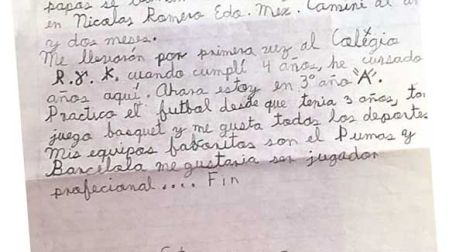 papas se
en Nicolas Romero Edo. Mex. Camine al un
y dos meses.
Me llevaron por primera vez al Colegio
R.Y.K, cuando cumplí 4 años, he cursado
años aquí. Ahora estoy en 3° año "A".
Practico el futbal desde que tenia 3 años, ta
juego basquet y me gusta todos los deportes
Mis equipos faboritos son el Pumas y
Barcelola me gustaria ser jugador
profecional.... Fin